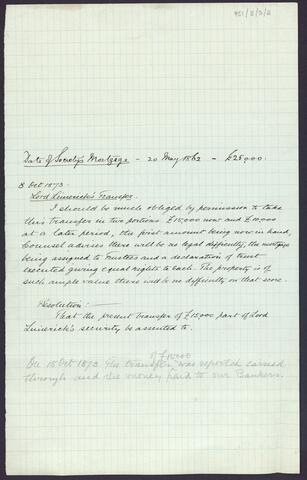 951/8/3/11
Date of Society's Mortgage - 20 May 1862 - £25000.
8 Oct 1873.
Lord Limerick's Transfer.
I should be much obliged by permission to take
this transfer in two portions £15000 now and £10000
at a later period, the first amount being now in hand,
Counsel advises there will be no legal difficulty, the mortgage
being assigned to Trustees and a declaration of trust
executed giving equal rights to each. The property is of
such ample value there will be no difficulty on that score.
Resolution: -
That the present transfer of £15000 part of Lord
Limerick's security be assented to.
of £15000
On 15 Oct 1873 the transfer was reported carried
through and the money paid to our Bankers.